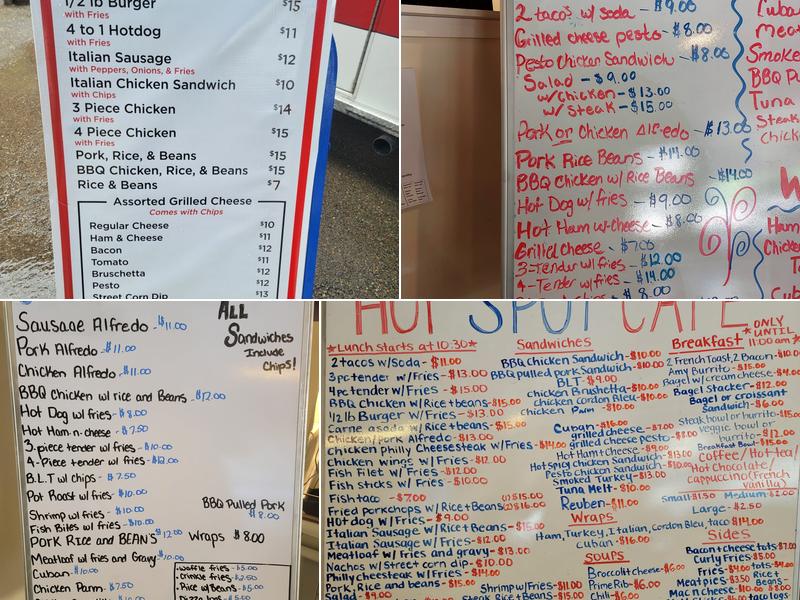 1/2 lb Burger $15
with Fries
4 to 1 Hotdog $11
with Fries
Italian Sausage $12
with Peppers, Onions, & Fries
Italian Chicken Sandwich $10
with Chips
3 Piece Chicken $14
with Fries
4 Piece Chicken $15
with Fries
Pork, Rice, & Beans $15
BBQ Chicken, Rice, & Beans $15
Rice & Beans $7
Assorted Grilled Cheese
Comes with Chips
Regular Cheese $10
Ham & Cheese $11
Bacon $12
Tomato $11
Bruschetta $12
Pesto $12
Street Corn Dip $13
2 tacos w/ soda - $9.00
Grilled cheese pesto - $8.00
Pesto Chicken Sandwich - $8.00
Salad - $9.00
w/chicken - $13.00
w/ steak - $15.00
Pork or Chicken Alfredo - $13.00
Pork Rice Beans - $14.00
BBQ Chicken w/ Rice Beans - $14.00
Hot Dog w/ fries - $9.00
Hot Ham w-cheese - $8.00
Grilled Cheese - $7.00
3-Tender w/ fries - $12.00
4-Tender w/ fries - $14.00
$8.00
Cuba
Mea
Smoke
BBQ Pu
Tuna
Steak
Chick
W
Ham
Chicke
T
Cub
Sausage Alfredo - $11.00
Pork Alfredo - $11.00
Chicken Alfredo - $11.00
BBQ Chicken w/ rice and Beans - $12.00
Hot Dog w/ fries - $8.00
Hot Ham n. cheese - $7.50
3-piece tender w/ fries - $10.00
4-Piece tender w/ fries - $12.00
B.L.T w/ chips - $7.50
Pot Roast w/ fries - $10.00
Shrimp w/ fries - $10.00
Fish Bites w/ Fries - $10.00
PORK RICE and BEAN'S $12.00
Meatloaf w/ fries and Gravy - $10.00
Cuban - $10.00
Chicken Parm - $7.50
ALL
Sandwiches
Include
Chips!
BBQ Pulled Pork
$8.00
Wraps $8.00
waffle fries - $5.00
crinkle fries - $2.50
Rice w/ Beans - $5.00
HOT SPOT CAFE
*Lunch starts at 10:30*
2 tacos w/ Soda - $11.00
3pc tender w/ Fries - $13.00
4pc tender w/ Fries - $15.00
BBQ Chicken w/ Rice + beans - $15.00
1/2 lb Burger w/ Fries - $13.00
Carne asada w/ Rice + beans - $15.00
Chicken/pork Alfredo - $13.00
Chicken philly Cheesesteak w/ Fries - $14.00
Chicken wings w/ Fries - $12.00
Fish Filet w/ Fries - $12.00
Fish sticks w/ Fries - $10.00
Fish taco - $7.00
Fried porkchops w/ Rice + beans (1) $15.00 (2) $16.00
Hot dog w/ Fries - $9.00
Italian Sausage w/ Rice + Beans - $15.00
Italian Sausage w/ Fries - $12.00
Meatloaf w/ Fries and gravy - $13.00
Nachos w/ Street corn dip - $10.00
Philly cheesesteak w/ Fries - $14.00
Pork, Rice, and beans - $15.00
Salad - $9.00
Shrimp w/ Fries - $11.00
Sandwiches
BBQ chicken Sandwich - $10.00
BBQ pulled pork Sandwich - $10.00
BLT - $9.00
chicken Brushetta - $10.00
chicken cordon Bleu - $10.00
chicken Parm - $10.00
Cuban - $16.00
grilled cheese - $7.00
grilled cheese pesto - $8.00
Hot Ham + cheese - $9.00
Hot spot chicken Sandwich - $13.00
Pesto chicken Sandwich - $10.00
Smoked Turkey - $13.00
Tuna Melt - $10.00
Reuben - $11.00
Wraps
Ham, Turkey, Italian, Cordon Bleu, taco $14.00
cuban - $16.00
Soups
Broccoli + cheese - $6.00
Prime Rib - $6.00
Chili - $6.00
Breakfast ONLY UNTIL 11:00 am
2 French Toast, 2 Bacon - $10.00
Amy Burrito - $15.00
Bagel w/ cream cheese - $4.00
Bagel Stacker - $12.00
Bagel or croissant
Sandwich - $6.00
Steak bowl or burrito - $15.00
veggie bowl or
burrito - $12.00
Breakfast Bowl - $15.00
coffee/Hot tea/
Hot Chocolate/
cappuccino (French
vanilla)
Small $1.50 Medium - $2.00
Large - $2.50
Sides
Bacon + cheese tots - $7.00
Curly Fries - $5.00
Fries - $4.00 tots - $4.00
Meat pies $3.50 Rice +
Mac n cheese - $10.00 Beans -